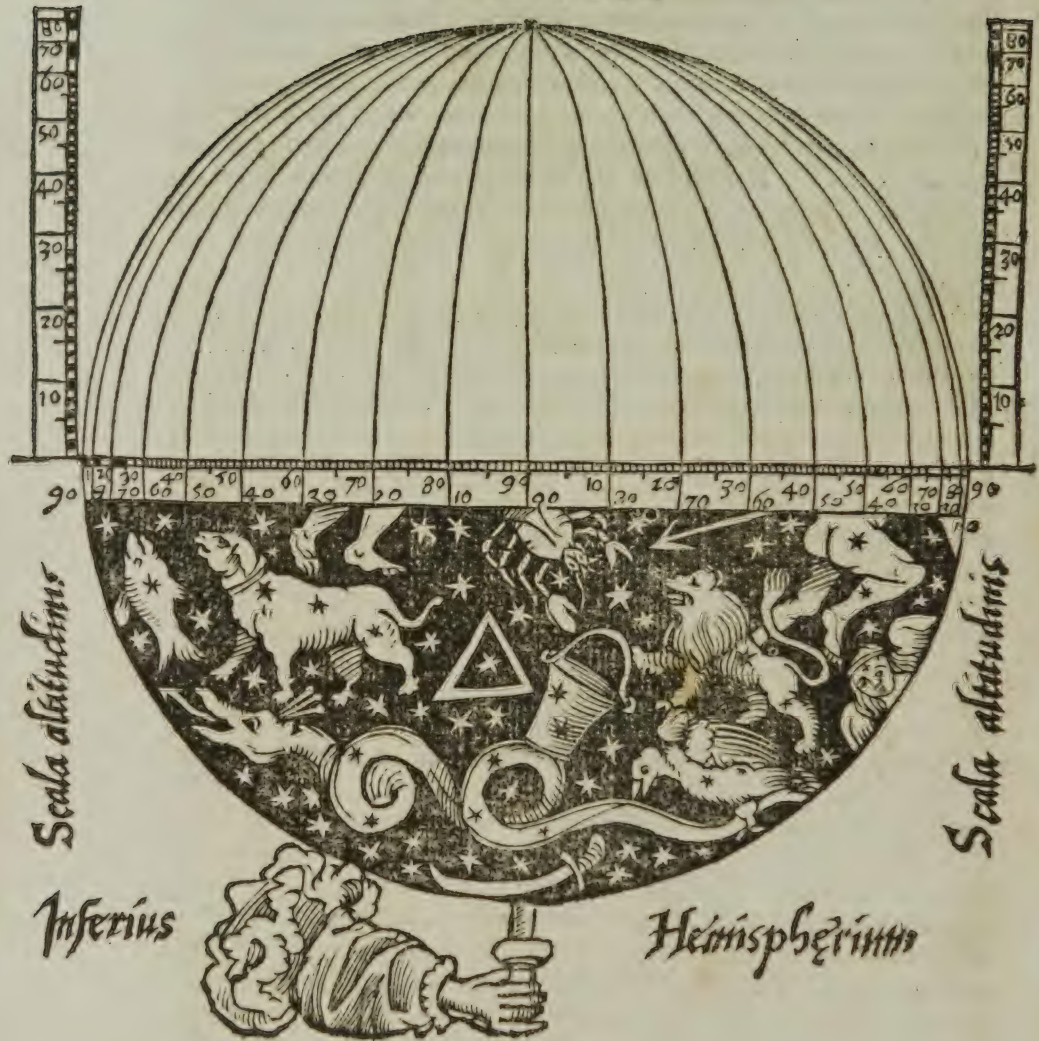 80
70
60
50
40
30
20
10
80
70
60
50
40
30
20
10
30 40 50 60 70 80 90 10 20 30 40 50 60 70 80 90
90 70 60 50 40 30 20 10 70 60 50 40
Scala altitudinis
Scala altitudinis
Inferius
Hemisphęrium